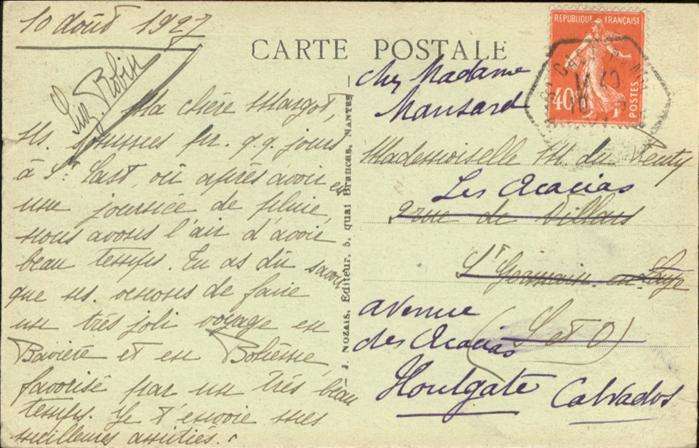 10 août 1927
CARTE POSTALE
REPUBLIQUE FRANÇAISE
40
POSTES
Robin
Ma chère Margot,
Ns. sommes pr. q.q. jours
à St. Cast, où après avoir eu
une journée de pluie,
nous avons l'air d'avoir
beau temps. Tu as dû savoir
que ns. venons de faire
un très joli voyage en
Bavière et en Bohême,
favorisé par un très beau
temps. Je t'envoie mes
meilleures amitiés.
J. NOZAIS, Editeur, 5, quai Brancas, NANTES
chez Madame
Mansard
Mademoiselle M. du
Les Acacias
2 rue de Villars
St Germain en Laye
(S et O)
avenue
des Acacias
Houlgate Calvados